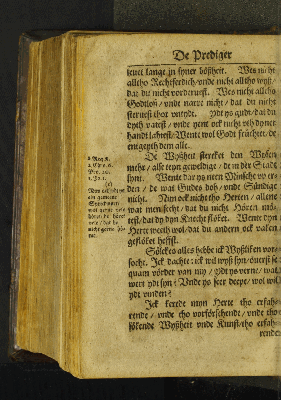 De Prediger
leuet lange yn syner bößheit. Wes nicht
altho Rechtferdich/ vnde nicht altho wyß/
dat du nicht vorderuest. Wes nicht altho
Godtloß/ vnde narre nicht/ dat du nicht
steruest thor vntydt. Ydt ys gudt/ dat du
dyth vatest/ vnde yene ock nicht vth dyner
handt lathest/ Wente wol Godt früchtet/ de
entgeyth dem alle.
De Wyßheit stercket den Wysen
mehr/ alse teyn geweldige/ de in der Stadt
synt. Wente dar ys neen Minsche vp er-
den/ de wat Gudes doh/ vnde Sündige
nicht. Nim ock nicht tho Herten/ allent
wat men secht/ dat du nicht Hören mö-
test/ dat dy dyn Knecht flöket. Wente dyn
Herte weeth wol/ dat du andern ock vaken
geflöket heffst.
Sölckes alles hebbe ick Wyßliken vor-
socht. Ick dachte: ick wil wyß syn/ ouerst se
quam vörder van my/ Ydt ys verne/ wat
wert ydt syn? Vnde ys seer deepe/ wol wil
ydt vinden?
Ick kerede myn Herte tho erfah-
rende/ vnde tho vorförschende/ vnde tho
sökende Wyßheit vnde Kunst/ tho erfah-
renden